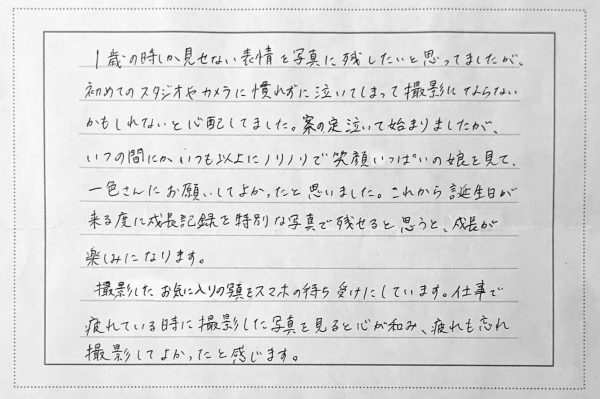 1歳の時しか見せない表情を写真に残したいと思ってましたが、
初めてのスタジオやカメラに慣れずに泣いてしまって撮影にならない
かもしれないと心配してました。案の定泣いて始まりましたが、
いつの間にかいつも以上にノリノリで笑顔いっぱいの娘を見て、
一色さんにお願いしてよかったと思いました。これから誕生日が
来る度に成長記録を特別な写真で残せると思うと、成長が
楽しみになります。
撮影したお気に入りの写真をスマホの待ち受けにしています。仕事で
疲れている時に撮影した写真を見ると心が和み、疲れも忘れ
撮影してよかったと感じます。